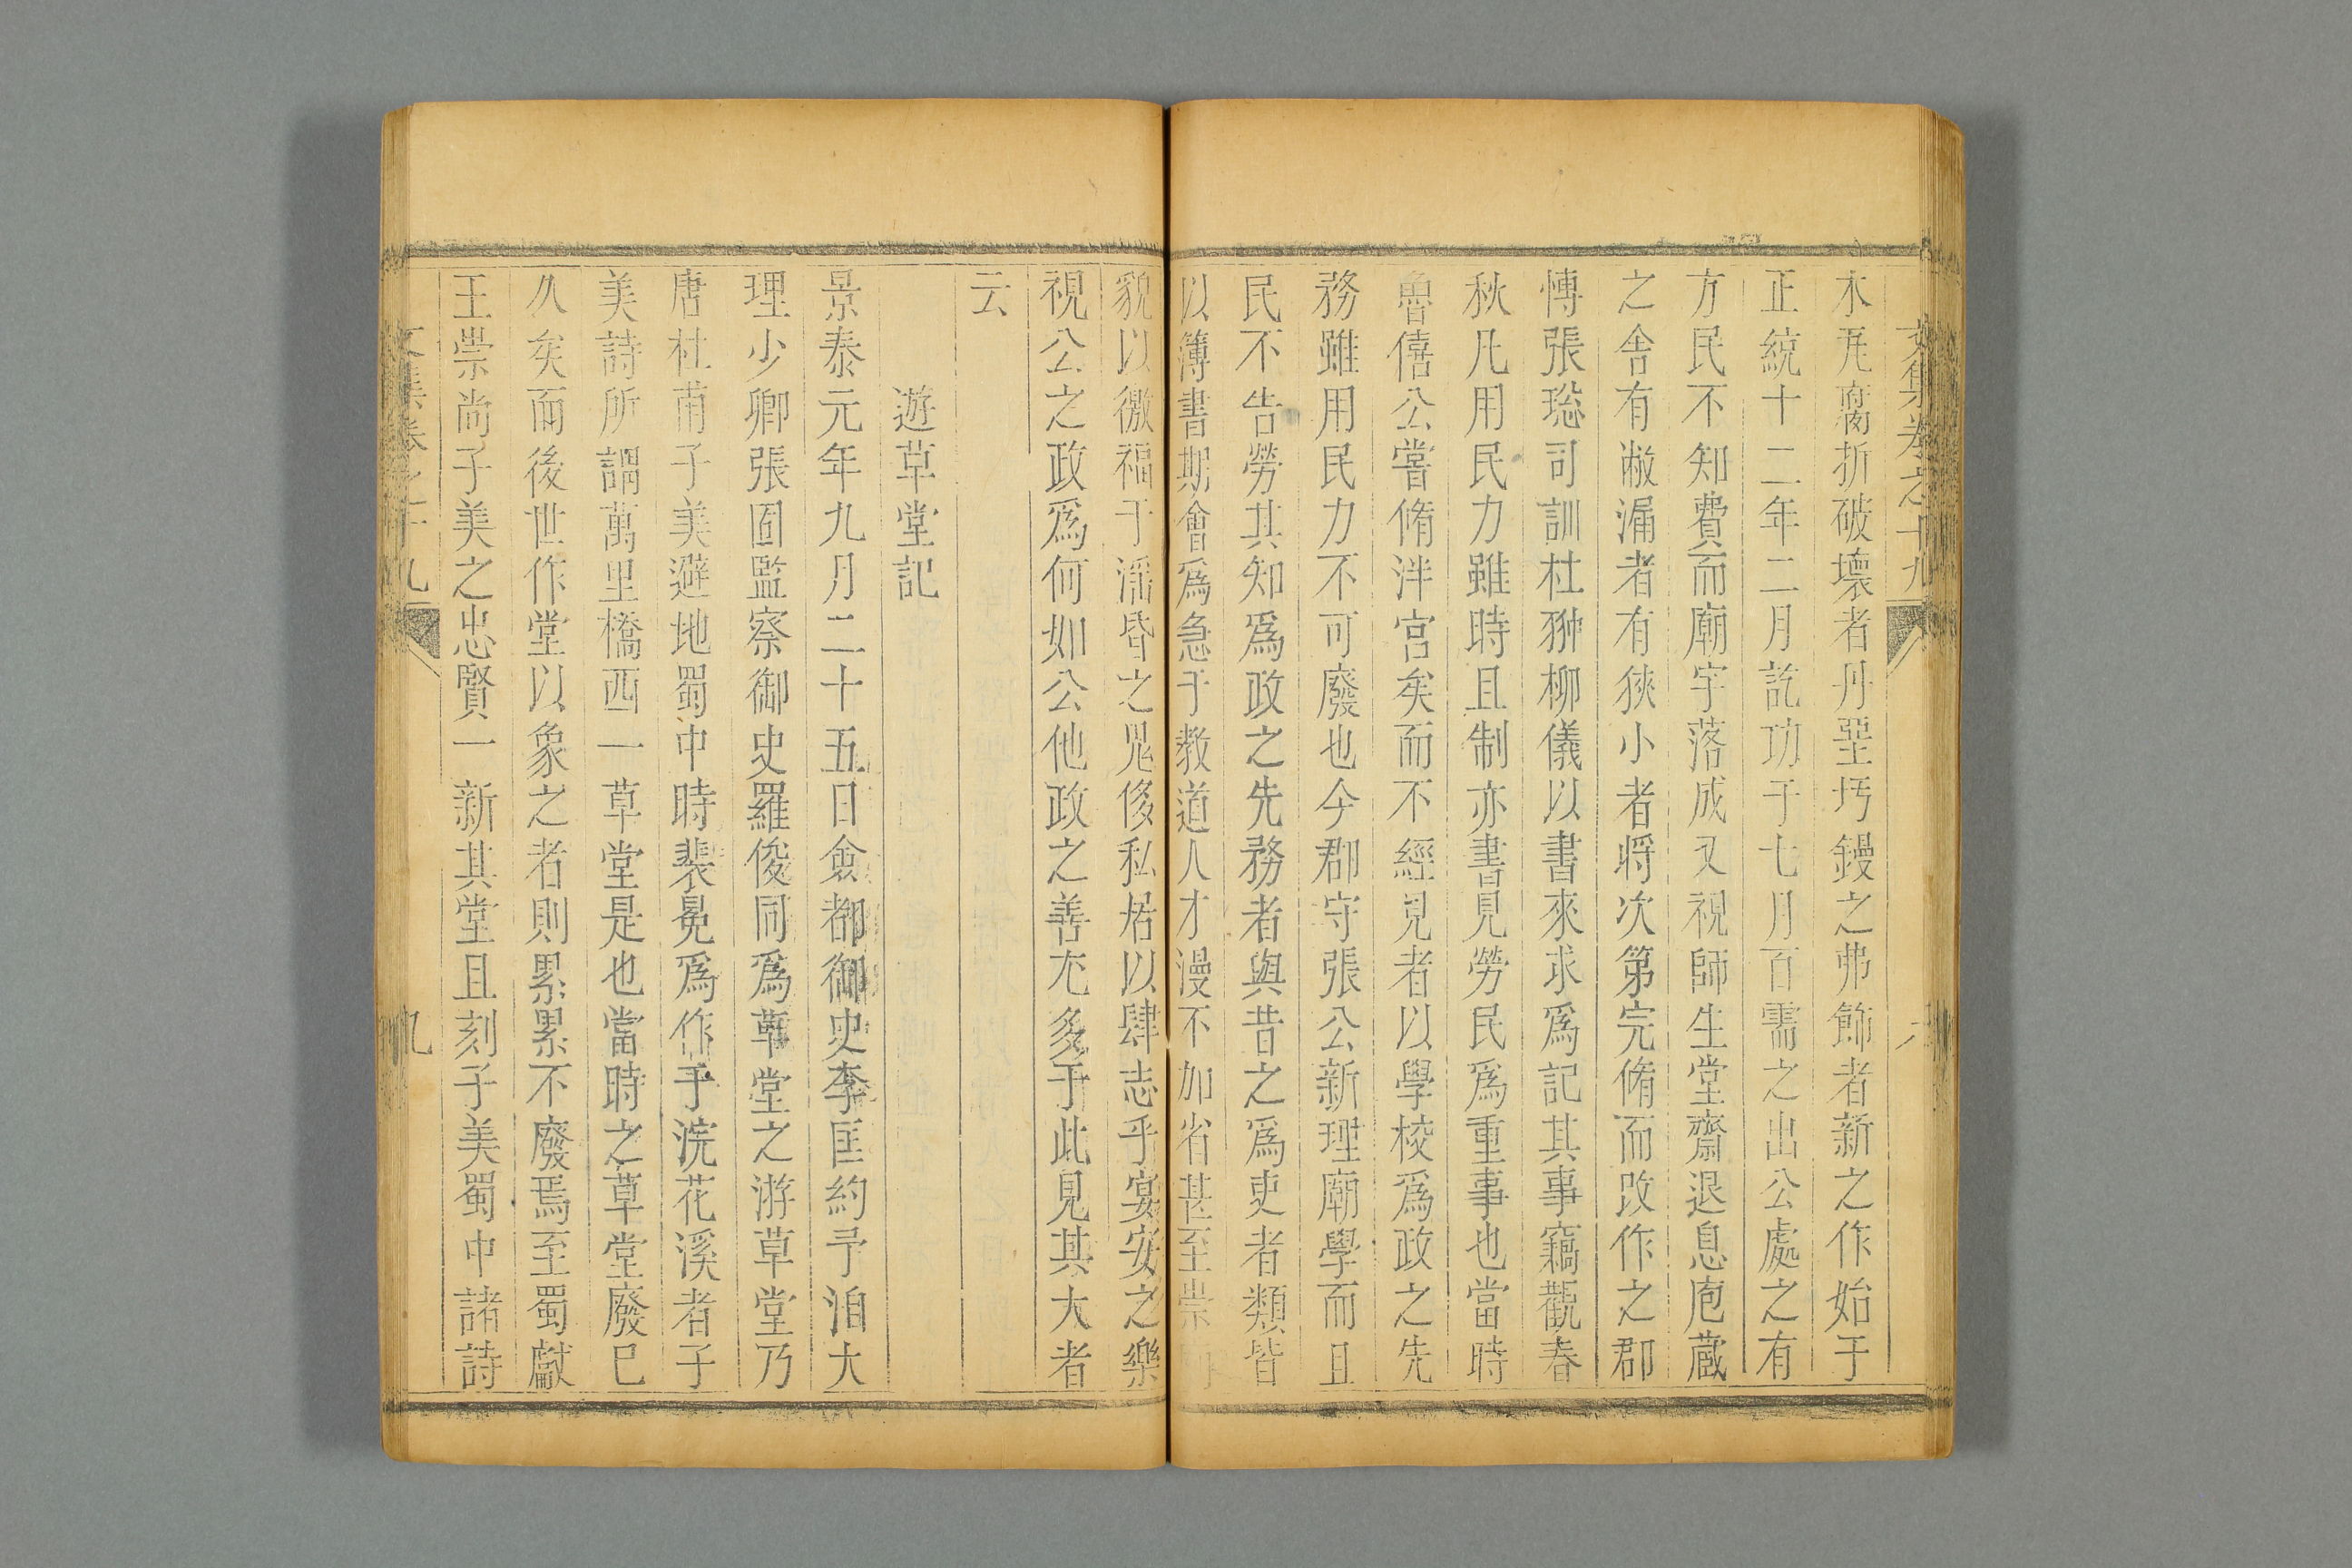 文集卷之十九
木瓦腐折破壞者丹堊圬鏝之弗飾者新之作始于
正統十二年二月訖功于七月百需之出公處之有
方民不知費而廟宇落成又視師生堂齋退息庖蔵
之舍有敝漏者有狹小者将次第完脩而改作之郡
愽張琰司訓杜翀柳儀以書來求爲記其事竊觀春
秋凡用民力雖時且制亦書見勞民爲重事也當時
魯僖公嘗脩泮宫矣而不經見者以學校爲政之先
務雖用民力不可廢也今郡守張公新理廟學而且
民不告勞其知爲政之先務者與昔之爲吏者類皆
以簿書期會爲急于教道人才漫不加省甚至崇
貌以徼福于滛昏之鬼侈私居以肆志乎宴安之樂
視公之政爲何如公他政之善尤多于此見其大者
云
遊草堂記
景泰元年九月二十五日僉都御史李匡約予洎大
理少卿張固監察御史羅俊同爲草堂之游草堂乃
唐杜甫子美避地蜀中時裴冕爲作于浣花溪者子
美詩所謂萬里橋西一草堂是也當時之草堂廢已
久矣而後世作堂以象之者則累累不廢焉至蜀獻
王崇尚子美之忠賢一新其堂且刻子美蜀中諸詩
文集卷之十九
九